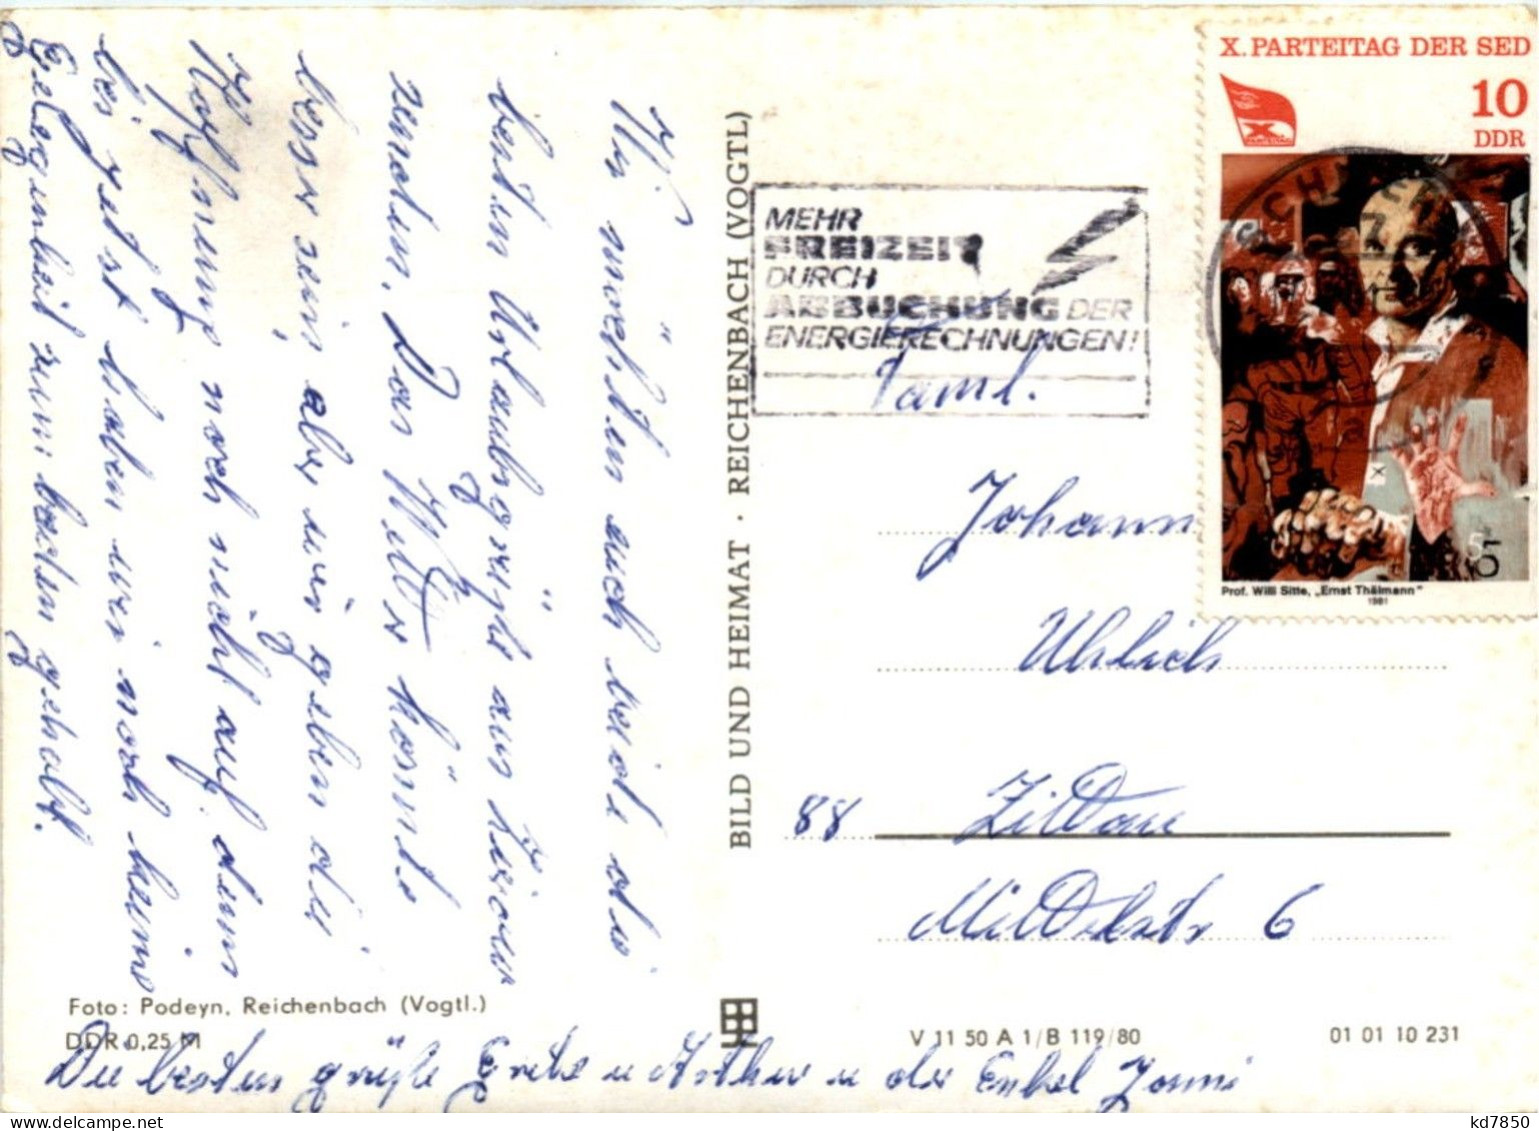 Wir möchten euch beide die
besten Urlaubsgrüße aus
senden. Das Wetter könnte
besser sein, aber wir geben die
Hoffnung noch nicht auf, denn
bis jetzt haben wir noch keine
Gelegenheit zum baden gehabt.
Die besten grüße Grete u Arthur u der Enkel
Foto: Podeyn, Reichenbach (Vogtl.)
DDR 0,25 M
BILD UND HEIMAT · REICHENBACH (VOGTL)
V 11 50 A 1/B 119/80
01 01 10 231
MEHR
FREIZEIT
DURCH
ABBUCHUNG DER
ENERGIERECHNUNGEN!
X. PARTEITAG DER SED
X
PARTEITAG
10
DDR
Prof. Willi Sitte, „Ernst Thälmann"
1981
Faml.
Johann
Uhlich
88 Zittau
Mittelstr 6
kd7850